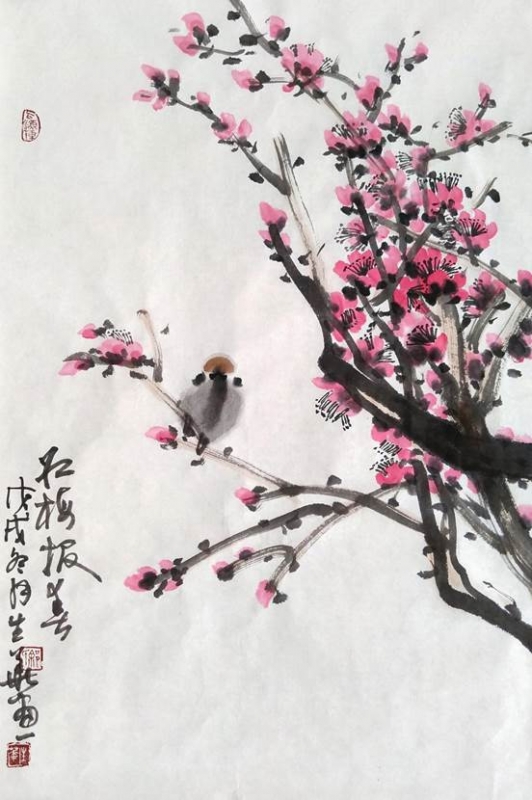 红梅报春
戊戌冬月生华画